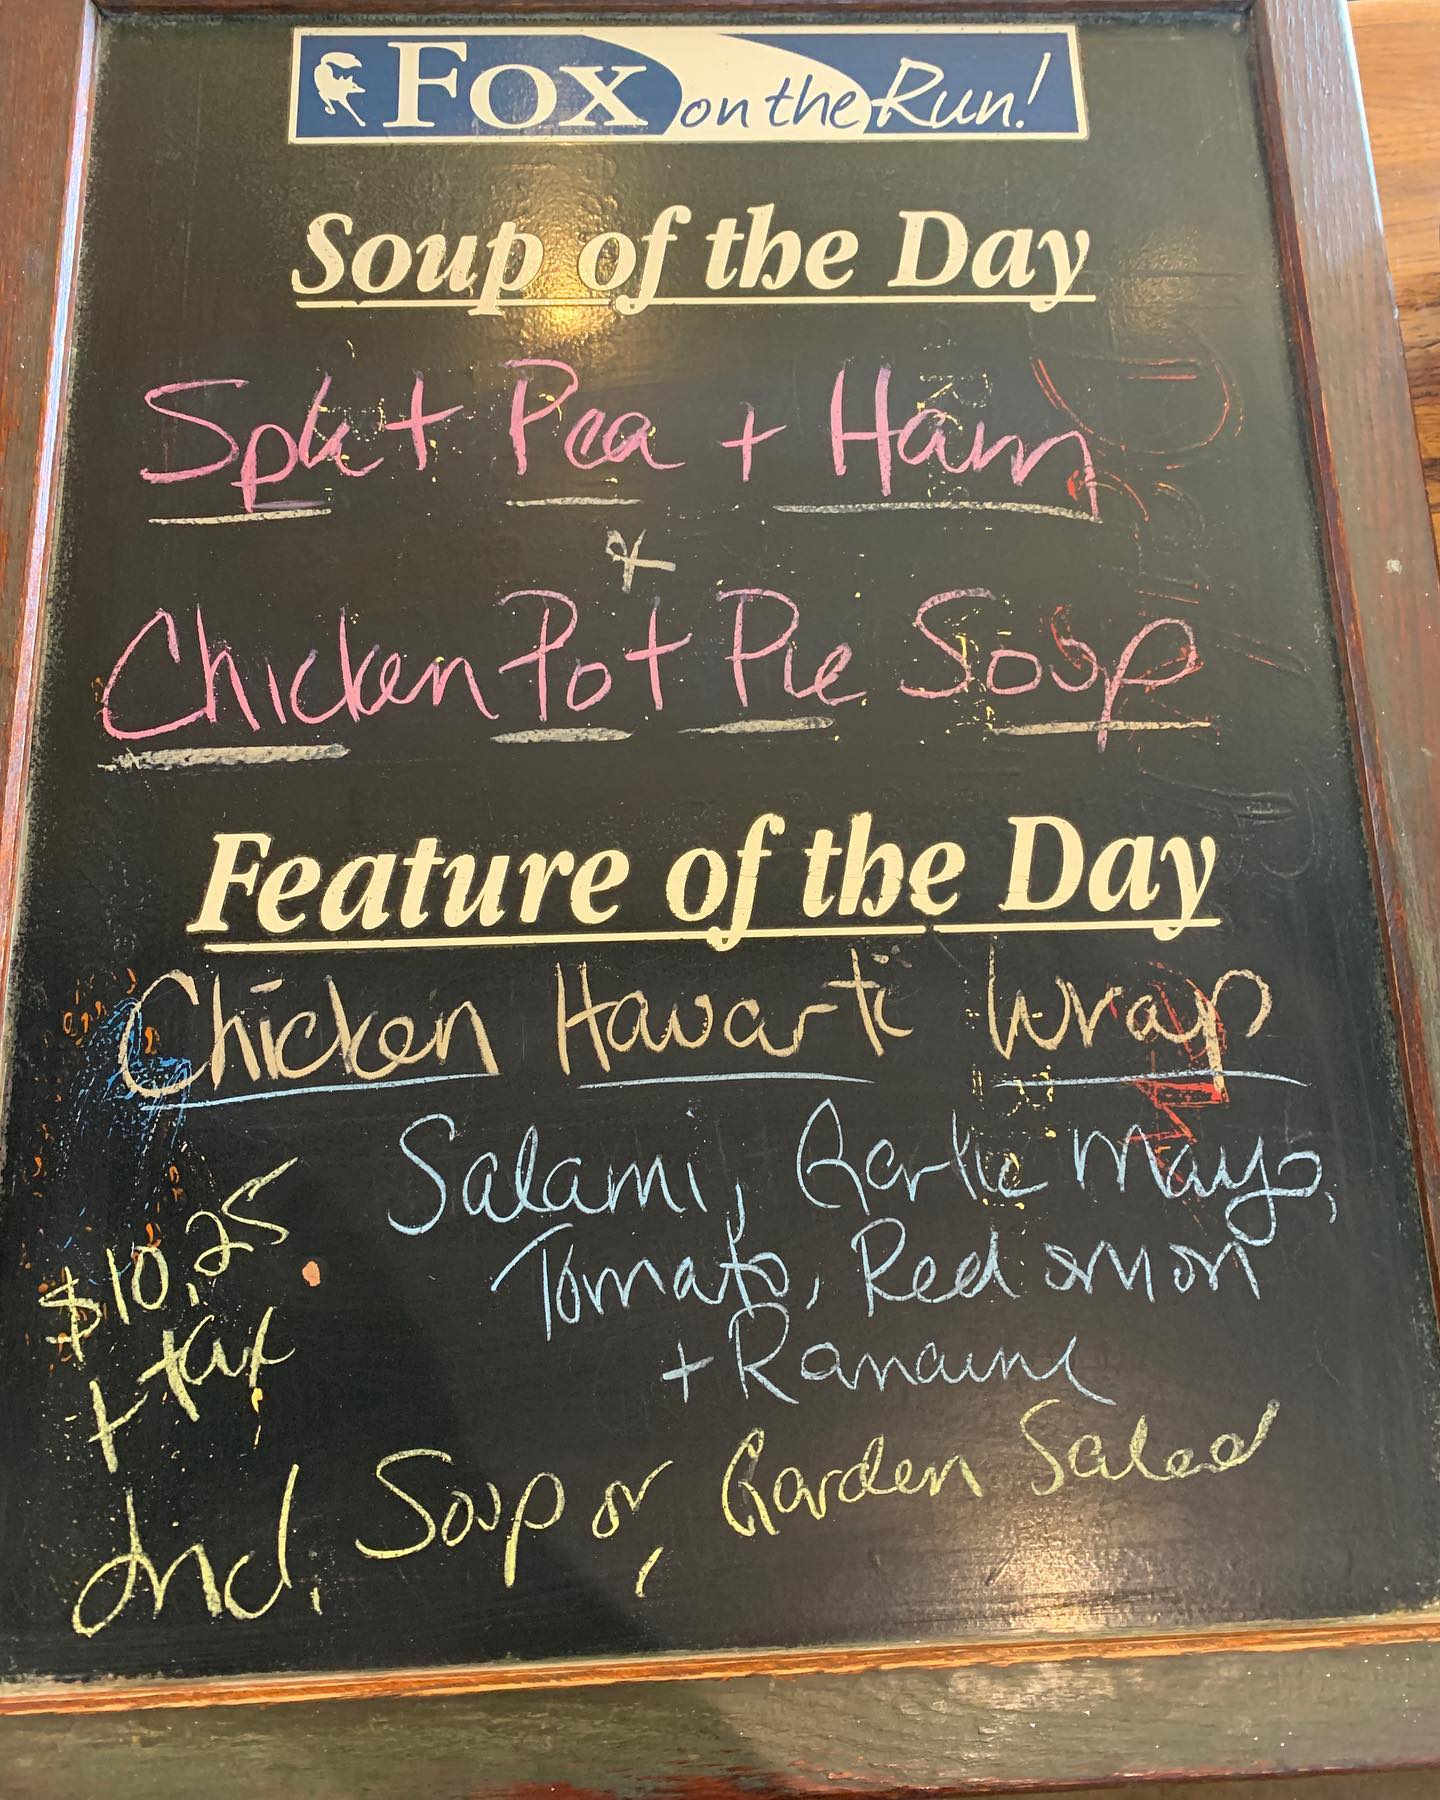 Fox on the Run!
Soup of the Day
Split Pea + Ham
&
Chicken Pot Pie Soup
Feature of the Day
Chicken Havarti Wrap
Salami, Garlic Mayo,
Tomato, Red onion
+ Romaine
$10.25
+ tax
Incl. Soup or Garden Salad